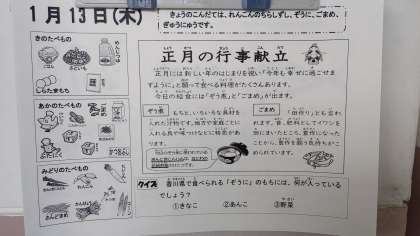 1月13日(木)
きょうのこんだては、れんこんのちらしずし、ぞうに、ごまめ、
ぎゅうにゅうです。
きのたべもの
しらたまもち
あかのたべもの
ぶたにく
かつおぶし
みどりのたべもの
れんこん
さんどまめ
正月の行事献立
正月には新しい年のはじまりを祝い「今年も幸せに過ごせま
すように」と願って食べる料理がたくさんあります。
今日の給食には「ぞうに」と「ごまめ」が出ます。
ぞう煮
もちと、いろいろな具材を
入れた汁物です。地方や家庭ごとに
入れる具や味つけなどに特徴があ
ります。
ごまめ
「田作り」とも言わ
れます。昔、肥料としてイワシを
畑にまいたところ、豊作になった
ことから、豊作を願う気持ちがこ
められています。
クイズ
香川県で食べられる「ぞうに」のもちには、何が入っている
でしょう?
①きなこ
②あんこ
③野菜